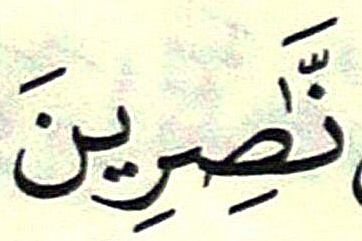 نَّٰصِرِينَ